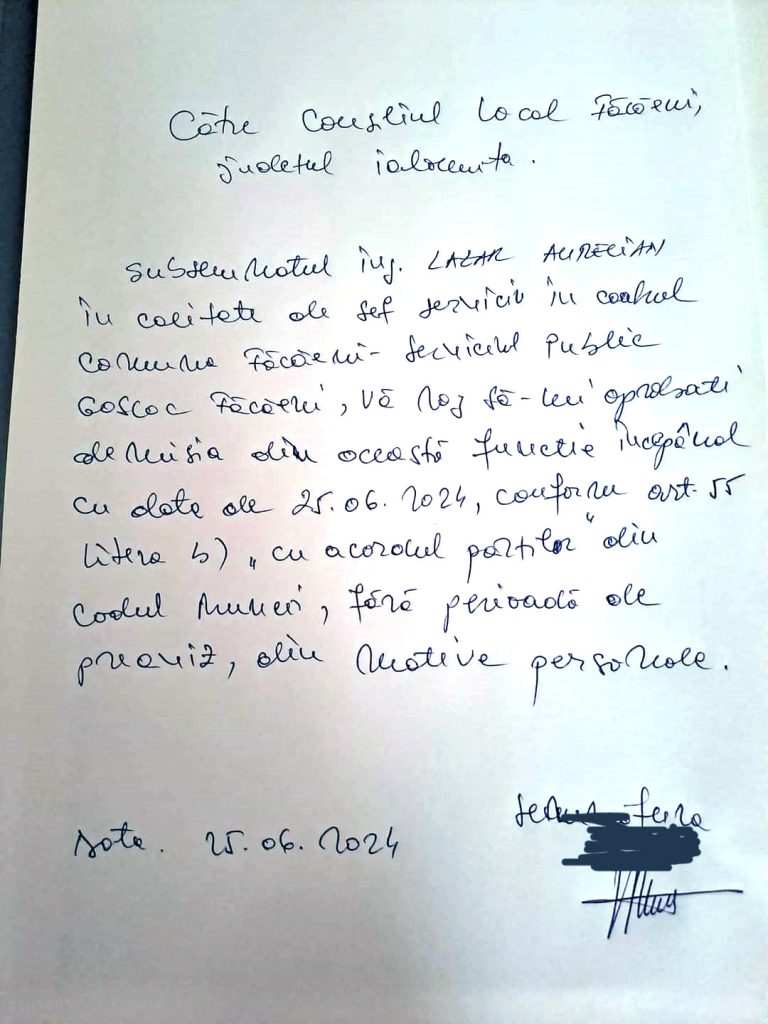 Către Consiliul Local Făcăeni,
județul ialomița.
Subsemnatul ing. LAZAR AURELIAN
în calitate de șef serviciu în cadrul
Comuna Făcăeni - Serviciul Public
GOSCOC Făcăeni, vă rog să-mi aprobați
demisia din această funcție începând
cu data de 25.06.2024, conform art. 55
litera b) „cu acordul părților" din
Codul Muncii, fără perioadă de
preaviz, din motive personale.
Data. 25.06.2024